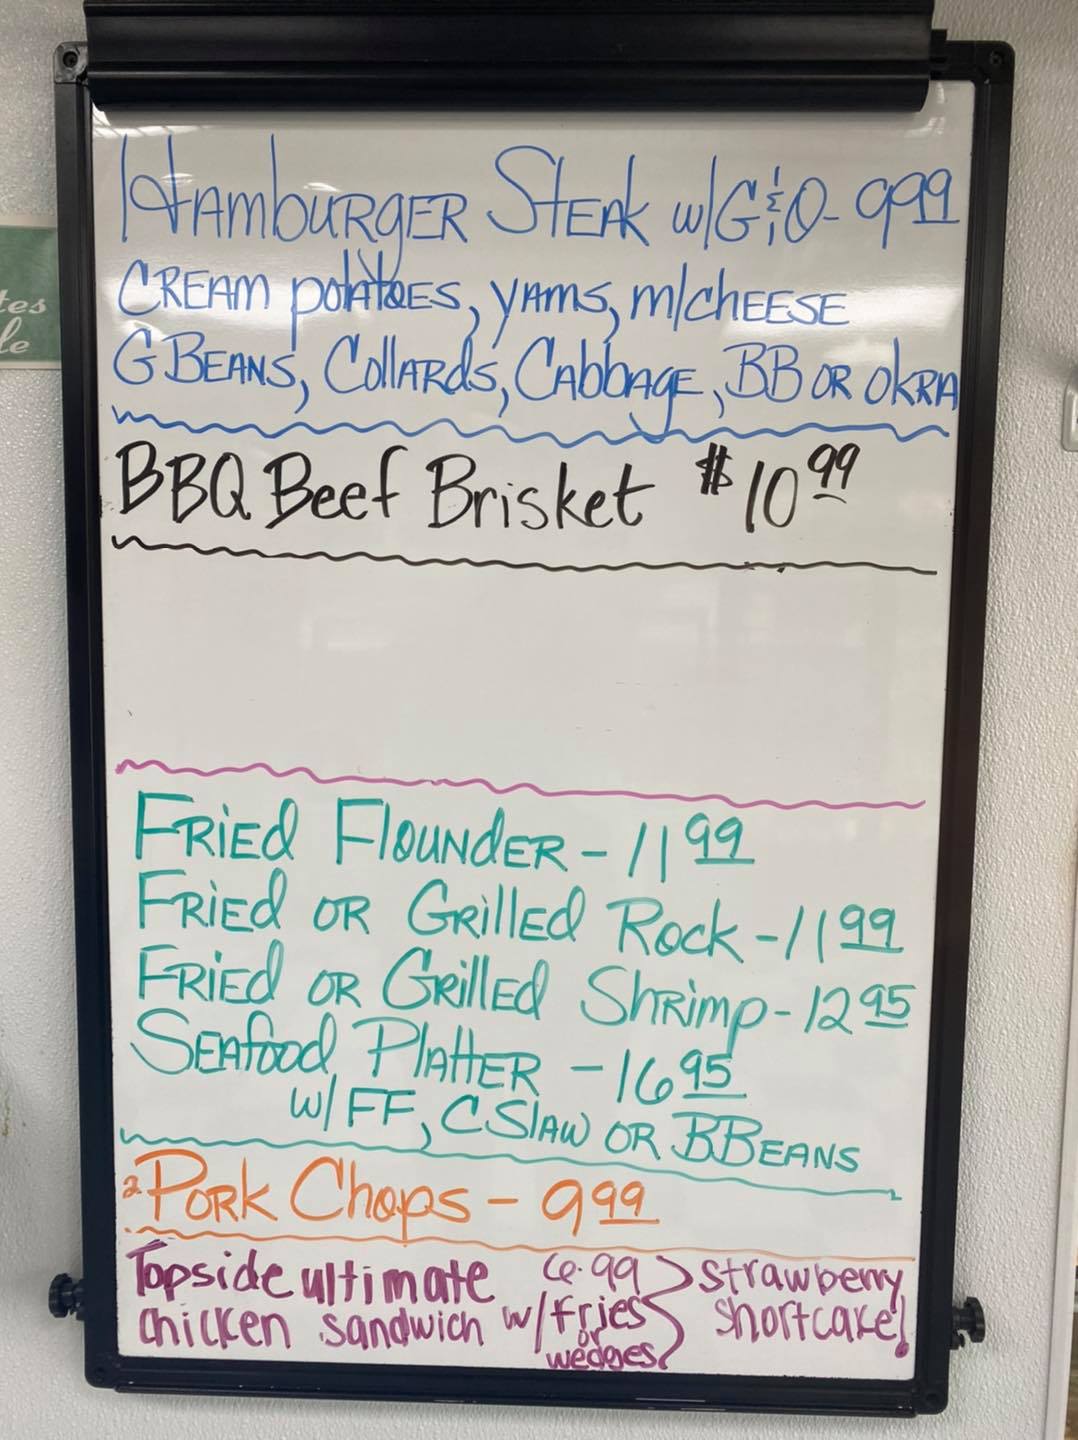 Hamburger Steak w/G&O - 9.99
Cream potatoes, yams, m/cheese
G Beans, Collards, Cabbage, BB or okra
BBQ Beef Brisket $10.99
Fried Flounder - 11.99
Fried or Grilled Rock - 11.99
Fried or Grilled Shrimp - 12.95
Seafood Platter - 16.95
w/ FF, C Slaw or B.Beans
2 Pork Chops - 9.99
Topside ultimate 6.99
chicken sandwich w/fries
or
wedges
strawberry
shortcake!
tes
le